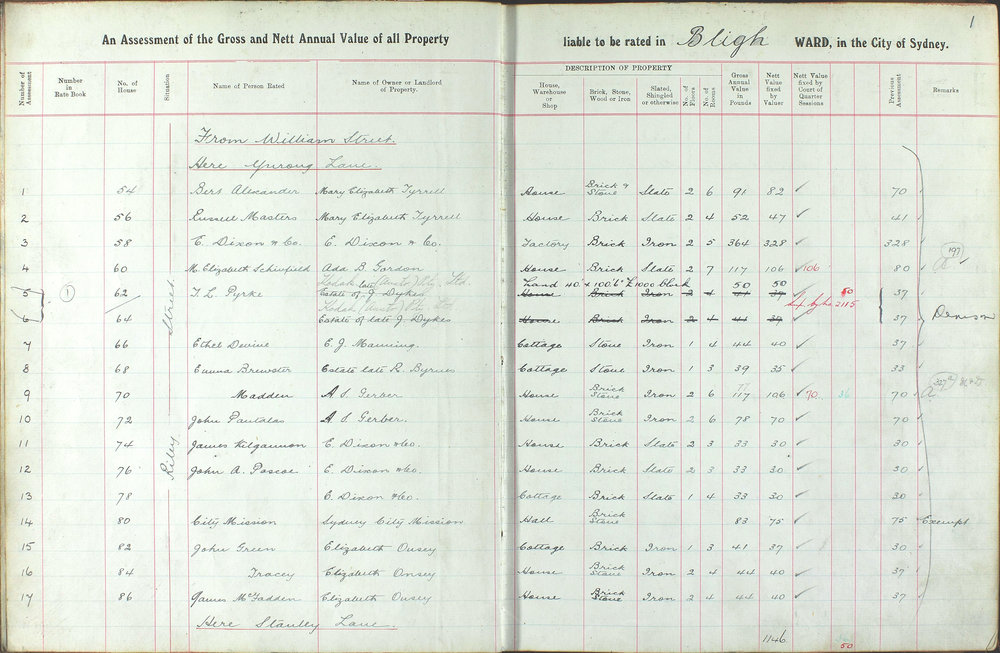 1
An Assessment of the Gross and Nett Annual Value of all Property liable to be rated in Bligh WARD, in the City of Sydney.
Number of Assessment
Number in Rate Book
No. of House
Situation
Name of Person Rated
Name of Owner or Landlord of Property.
DESCRIPTION OF PROPERTY
House, Warehouse or Shop
Brick, Stone, Wood or Iron
Slated, Shingled or otherwise
No. of Floors
No. of Rooms
Gross Annual Value in Pounds
Nett Value fixed by Valuer
Nett Value fixed by Court of Quarter Sessions
Previous Assessment
Remarks
Riley Street
From William Street.
Here Yurong Lane.
1 54 Bers Alexander Mary Elizabeth Tyrrell House Brick & Stone Slate 2 6 91 82 ✓ 70
2 56 Russell Masters Mary Elizabeth Tyrrell House Brick Slate 2 4 52 47 ✓ 41
3 58 E. Dixon & Co. E. Dixon & Co. Factory Brick Iron 2 5 364 328 ✓ 328
4 60 M. Elizabeth Ada B. Gordon House Brick Slate 2 7 117 106 ✓ 106 80 A 197
Kodak Ltd. Land 40 x 100.6" £1000 block 50 50
5 1 62 T. L. Pyrke Estate of late J. Dykes House Brick Iron 2 4 41 37 50 37
Kodak 2115
6 64 Estate of late J. Dykes House Brick Iron 2 4 41 37 37 Denison
7 66 Ethel Devine E. J. Manning. Cottage Stone Iron 1 4 44 40 ✓ 37
8 68 Emma Brewster Estate late R. Byrnes Cottage Stone Iron 1 3 39 35 ✓ 33
9 70 Madden A S. Gerber House Brick Stone Iron 2 6 77 117 106 ✓ 70. 36 70 A
10 72 John Pantalas A S. Gerber. House Brick Stone Iron 2 6 78 70 ✓ 70
11 74 James Kilgannon E. Dixon & Co. House Brick Slate 2 3 33 30 ✓ 30
12 76 John A. Pascoe E. Dixon & Co. House Brick Slate 2 3 33 30 ✓ 30
13 78 E. Dixon & Co. Cottage Brick Slate 1 4 33 30 ✓ 30
14 80 City Mission Sydney City Mission Hall Brick Stone 83 75 ✓ 75 Exempt
15 82 John Green Elizabeth Ousey Cottage Brick Iron 1 3 41 37 ✓ 30
16 84 Tracey Elizabeth Ousey House Brick Stone Iron 2 4 44 40 ✓ 37
17 86 James McFadden Elizabeth Ousey House Brick Stone Iron 2 4 44 40 ✓ 37
Here Stanley Lane.
1146
50